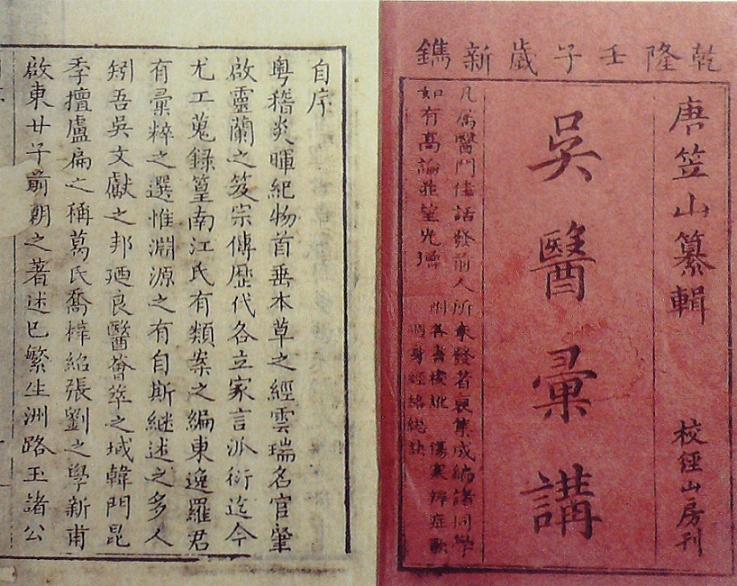 乾隆壬子歲新鐫
唐笠山纂輯
吳醫彙講
校經山房刊
凡屬醫門佳話發前人所未發者裒集成編諸同學
如有高論
自序
粵稽炎暉紀物首垂本草之經雲瑞名官肇
啟靈蘭之笈宗傳歷代各立家言派衍迄今
尤工蒐錄篁南江氏有類案之編東逸羅君
有彙粹之選惟淵源之有自斯繼述之多人
矧吾吳文獻之邦廼良醫薈萃之域韓門昆
季擅盧扁之稱葛氏喬梓紹張劉之學新甫
啟東廿子前朝之著述已繁生洲路玉諸公